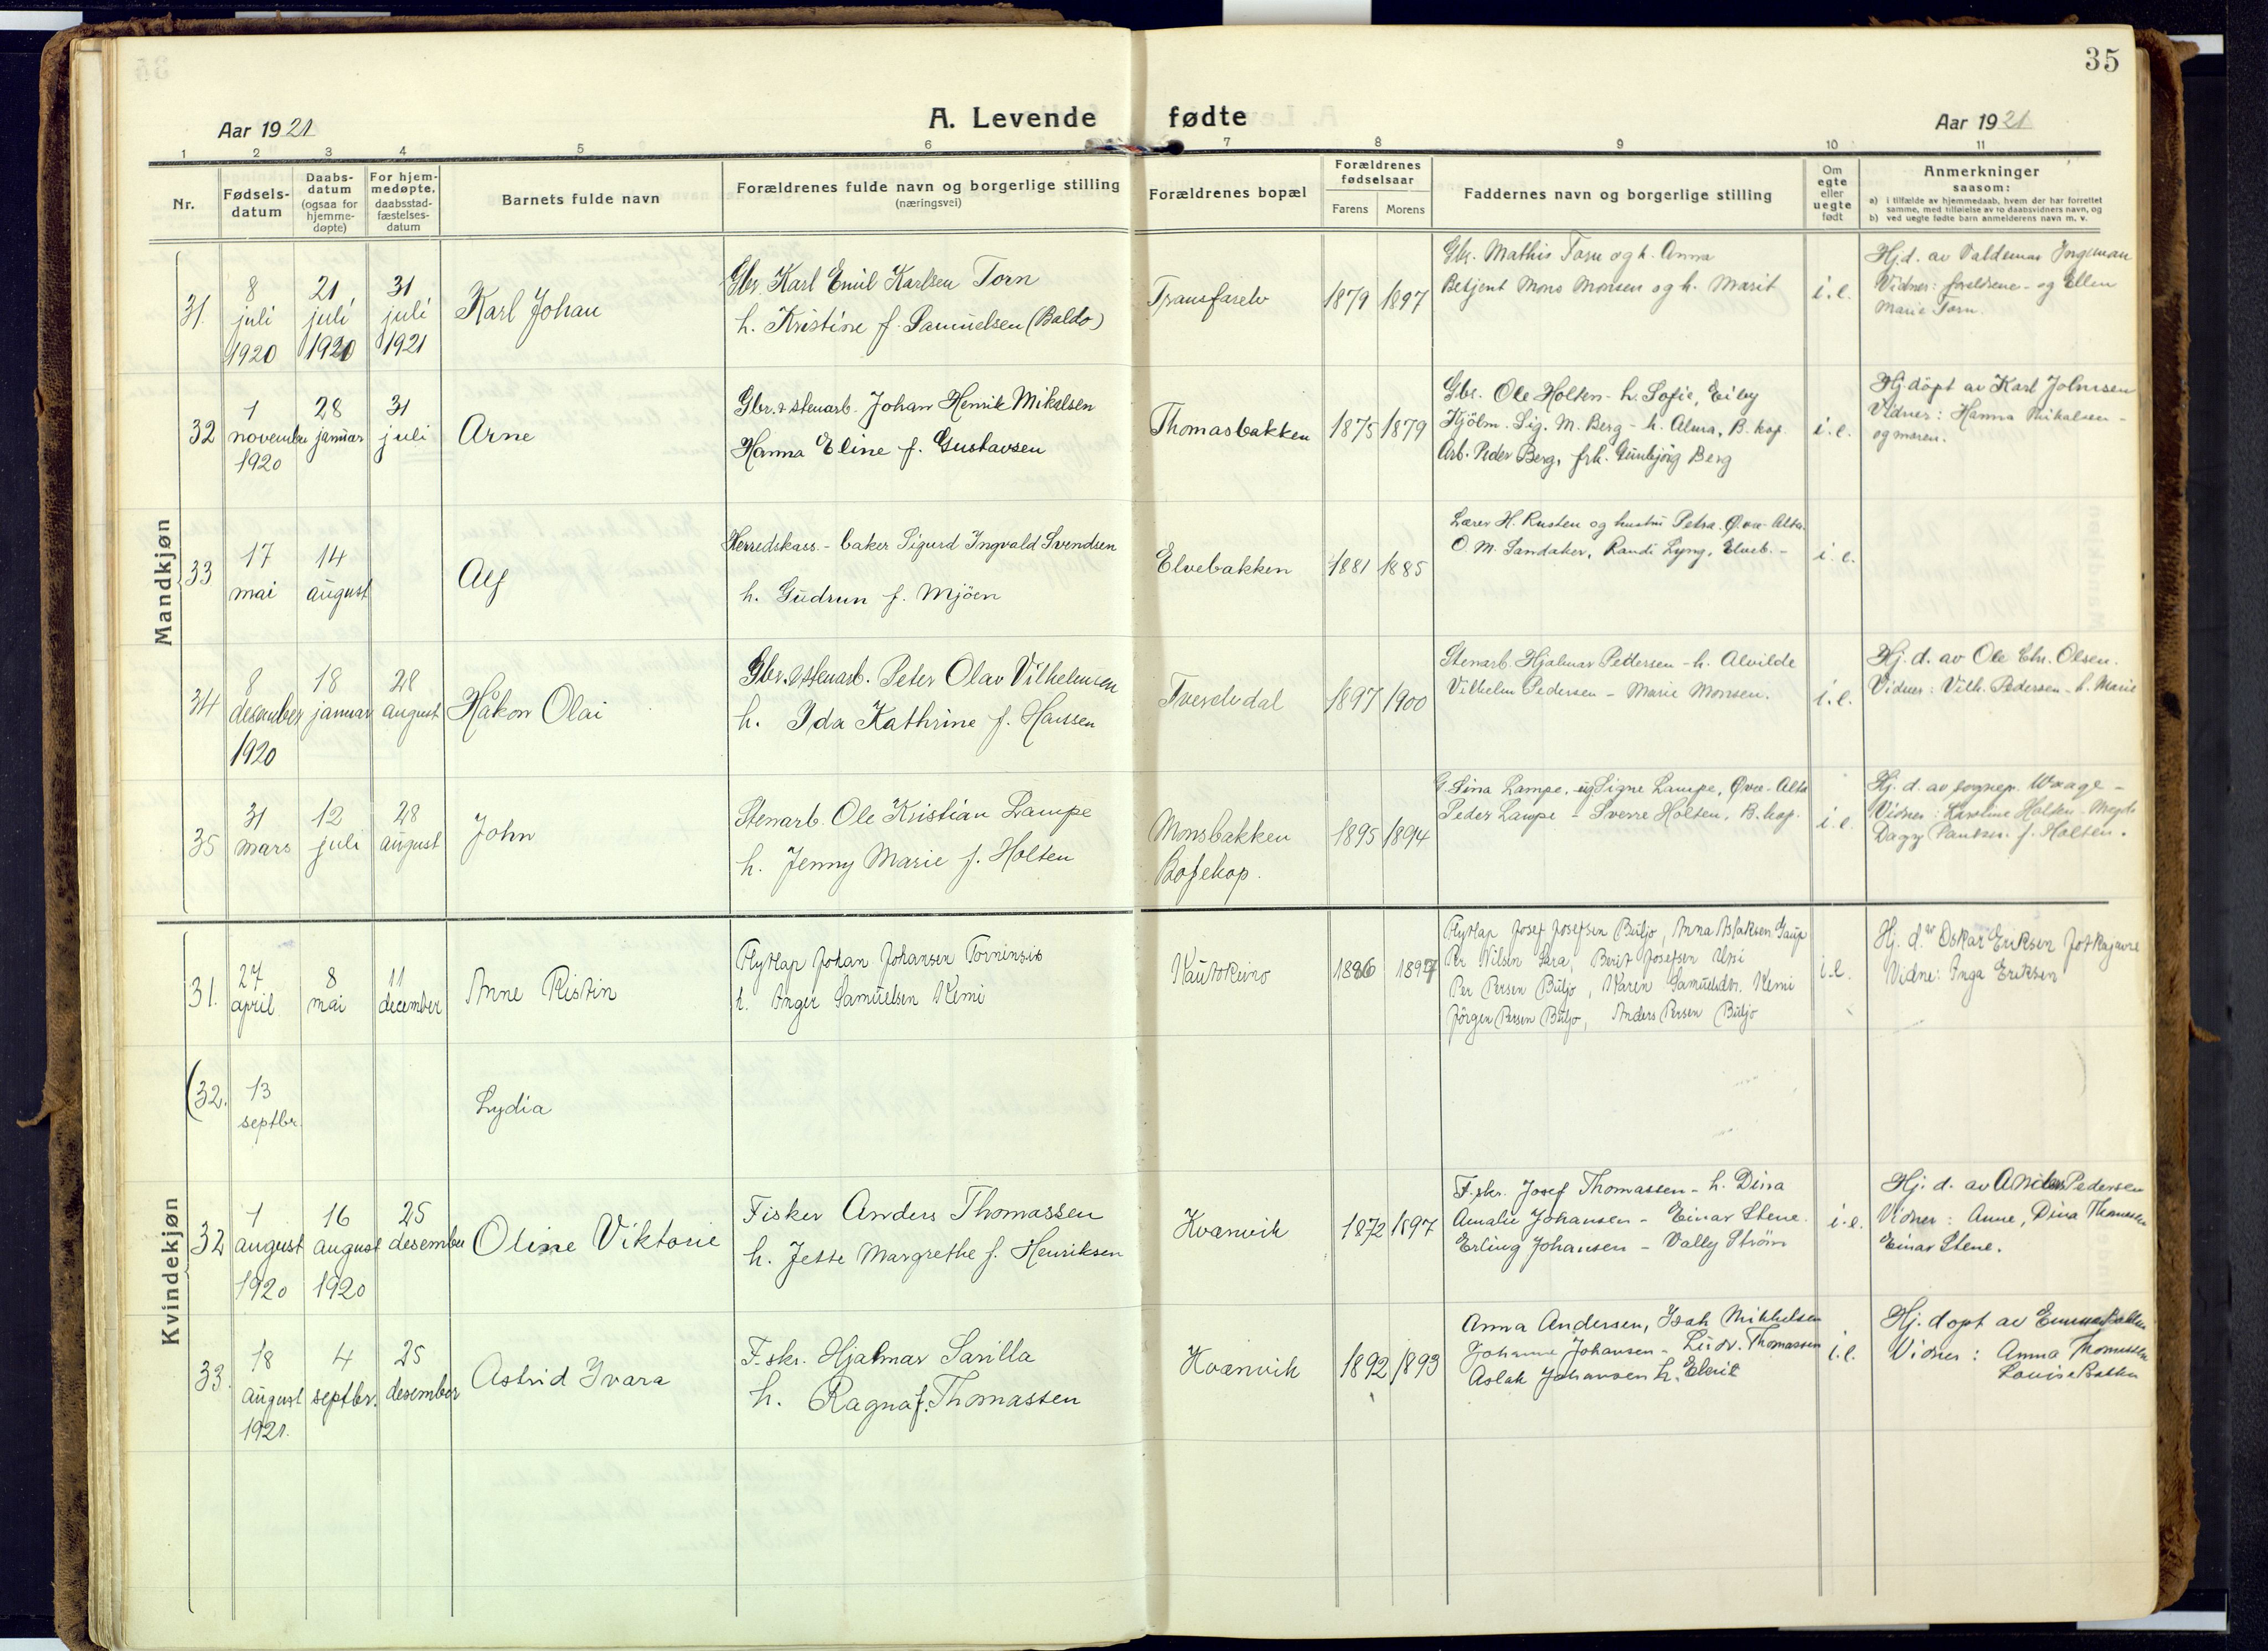 35
A. Levende fødte
Aar 1921
Aar 1921
1 2 3 4 5 6 7 8 9 10 11
Nr.
Fødsels-
datum
Daabs-
datum
(ogsaa for
hjemme-
døpte)
For hjem-
medøpte,
daabsstad-
fæstelses-
datum
Barnets fulde navn
Forældrenes fulde navn og borgerlige stilling
(næringsvei)
Forældrenes bopæl
Forældrenes
fødselsaar
Farens Morens
Faddernes navn og borgerlige stilling
Om
egte
eller
uegte
født
Anmerkninger
saasom:
a) i tilfælde av hjemmedaab, hvem der har forrettet
samme, med tilføielse av to daabsvidners navn, og
b) ved uegte fødte barn anmelderens navn m. v.
Mandkjøn
31.
8
juli
1920
21
juli
1920
31
juli
1921
Karl Johan
Gbr. Karl Emil Karlsen Torn
h. Kristine f. Samuelsen (Baldo)
Transfarelv
1879 1897
Gbr. Mathis Torn og h. Anna
Betjent Mons Monsen og h. Marit
i.e.
Hj.d. av Valdemar
Vidner: foreldrene - og Ellen
Marie Torn.
32
1
november
1920
28
januar
31
juli
Arne
Gbr. & stenarb. Johan Henrik Mikalsen
Hanna Eline f. Gustavsen
Thomasbakken
1875 1879
Gbr. Ole Holten - h. Sofie, Eiby
Kjölm. Sig. M. Berg - h. Alma, B.kop.
Arb. Peder Berg, frk. Gunbjörg Berg
i.e.
Hj.döpt av Karl Johnsen
Vidner: Hanna Mikalsen -
og moren.
33
17
mai
14
august
Alf
Herredskass. - baker Sigurd Ingvald Svendsen
h. Gudrun f. Mjöen
Elvebakken
1881 1885
Lærer H. Rusten og hustru Petra. Øvre-Alta.
O. M. Sandaker, Randi Lyng, Elveb. -
i.e.
34
8
desember
1920
18
januar
28
august
Håkon Olai
Gbr. & stenarb. Peter Olav Vilhelmsen
h. Ida Kathrine f. Hansen
Tverelvdal
1897 1900
Stenarb. Hjalmar Pedersen - h. Alvilde
Vilhelm Pedersen - Marie Monsen.
i.e.
Hj. d. av Ole Chr. Olsen.
Vidner: Vilh. Pedersen - h. Marie
35
31
mars
12
juli
28
august
John
Stenarb. Ole Kristian Lampe
h. Jenny Marie f. Holten
Monsbakken
Bossekop.
1895 1894
G. Sina Lampe, ug. Signe Lampe, Øvre-Alta
Peder Lampe - Sverre Holten, B.kop.
i.e.
Hj. d. av sognepr. Waage -
Vidner: Karoline Holten -
Dagg f. Holten.
Kvindekjøn
31.
27
april
8
mai
11
december
Anne Ristin
Flytlap Johan Johansen Torninsis
h. Inger Samuelsen Kemi
Kautokeino
1886 1897
Flytlap Josef Josefsen Buljo, Anna Aslaksen Gaup
Per Nilsen Sara, Berit Josefsen Utsi
Per Persen Buljo, Karen Samuelsdtr. Kemi
Jörgen Persen Buljo, Anders Persen Buljo
i.e.
Hj. d. av Oskar Eriksen Jotkajavre
Vidne: Inga Eriksen
(32.
13
septbr.
Lydia
32
1
august
1920
16
august
1920
25
desember
Oline Viktorie
Fisker Anders Thomassen
h. Jette Margrethe f. Henriksen
Kvænvik
1872 1897
F.skr. Josef Thomassen - h. Dina
Amalie Johansen - Einar Stene.
Erling Johansen - Vally Ström
i.e.
Hj. d. av Pedersen
Vidner: Anne, Dina Thomassen
Einar Stene.
33.
18
august
1921.
4
septbr.
25
desember
Astrid Ivara
F.skr. Hjalmar Sarilla
h. Ragna f. Thomassen
Kvænvik
1892 1893
Anna Andersen, Isak Mikkelsen
Johanne Johansen - Ludv. Thomassen
Aslak Johansen h. Elerit
i.e.
Hj. döpt av Emma Bakken
Vidner: Anna Thomassen
Louise Bakken